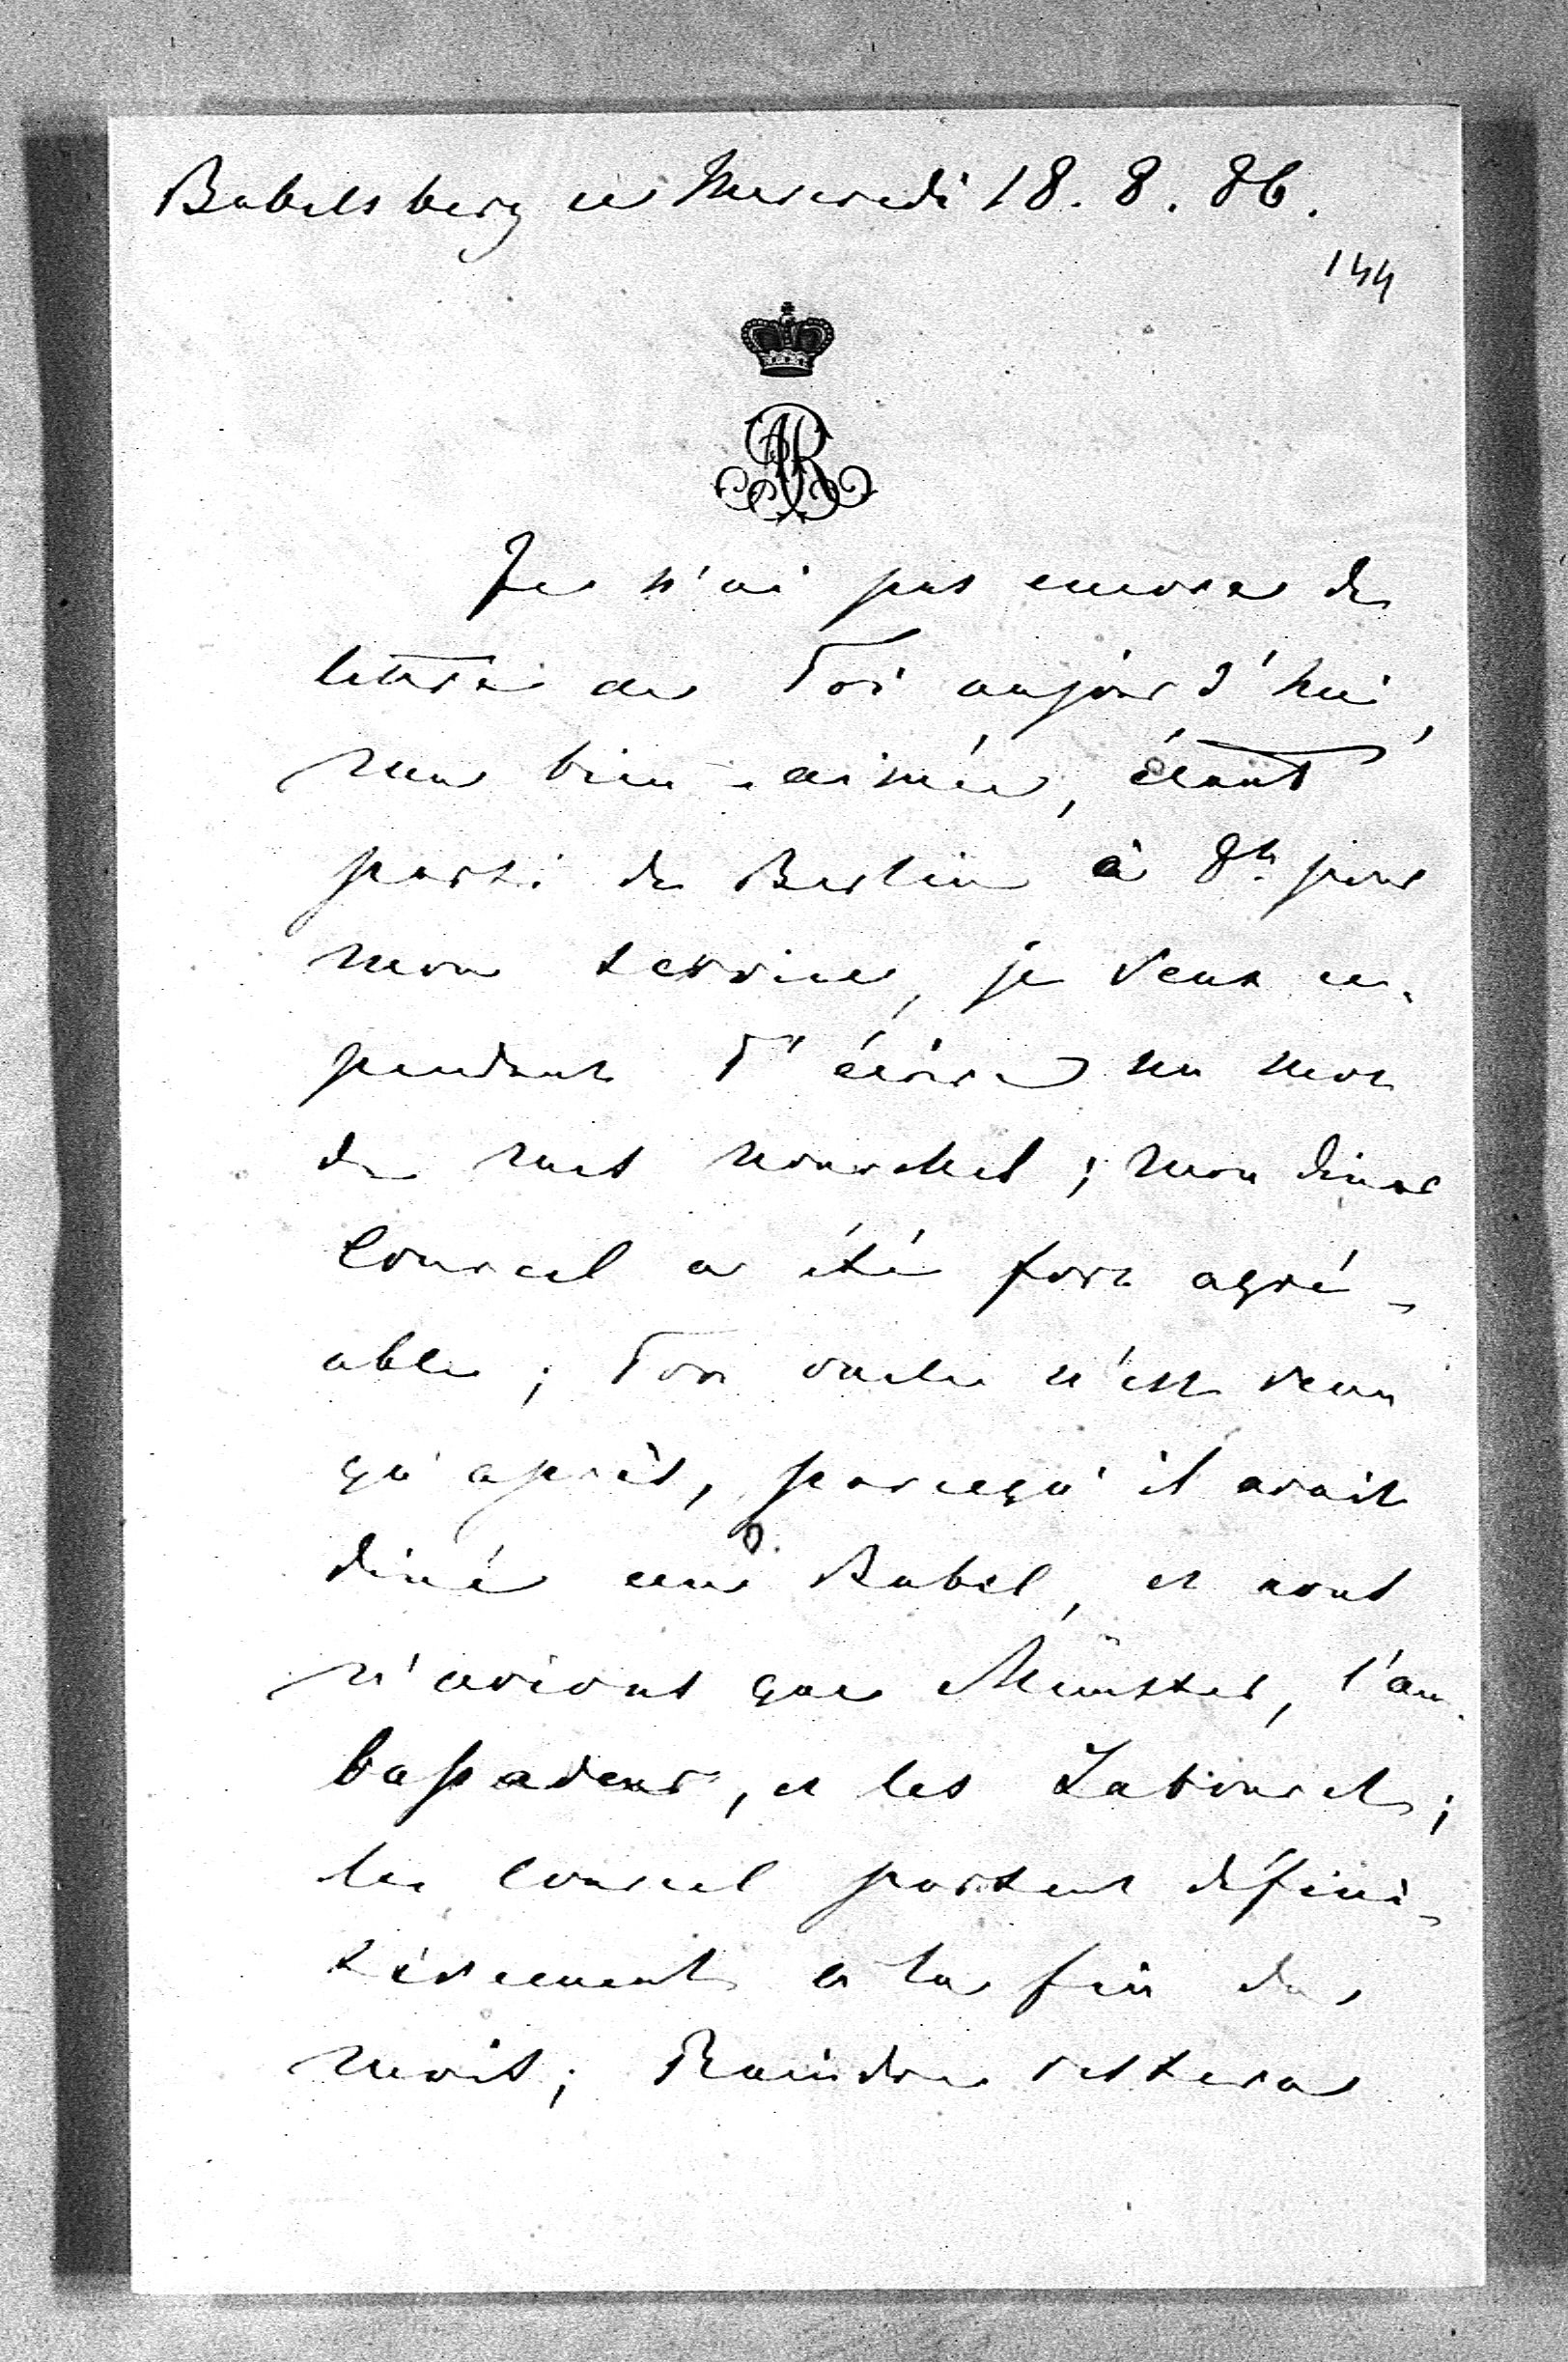 Babelsberg ce Mercredi 18. 8. 86.
144
AR
Je n'ai pas encore de
lettre de Toi aujourd'hui,
ma bien-aimée, étant
parti de Berlin à 8h pour
mon service, je veux ce-
pendant T'écrire un mot
de mes nouvelles ; mon diner
Courcel a été fort agré-
able ; Ton oncle n'est venu
qu'après, parcequ'il avait
diné au Babel, et nous
n'avions que Münster, l'am-
bassadeur, et les ;
les Courcel partent défini-
tivement à la fin du
mois ; Raindre restera